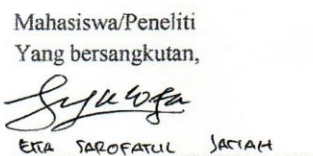 Mahasiswa/Peneliti
Yang bersangkutan,
SAROFATUL